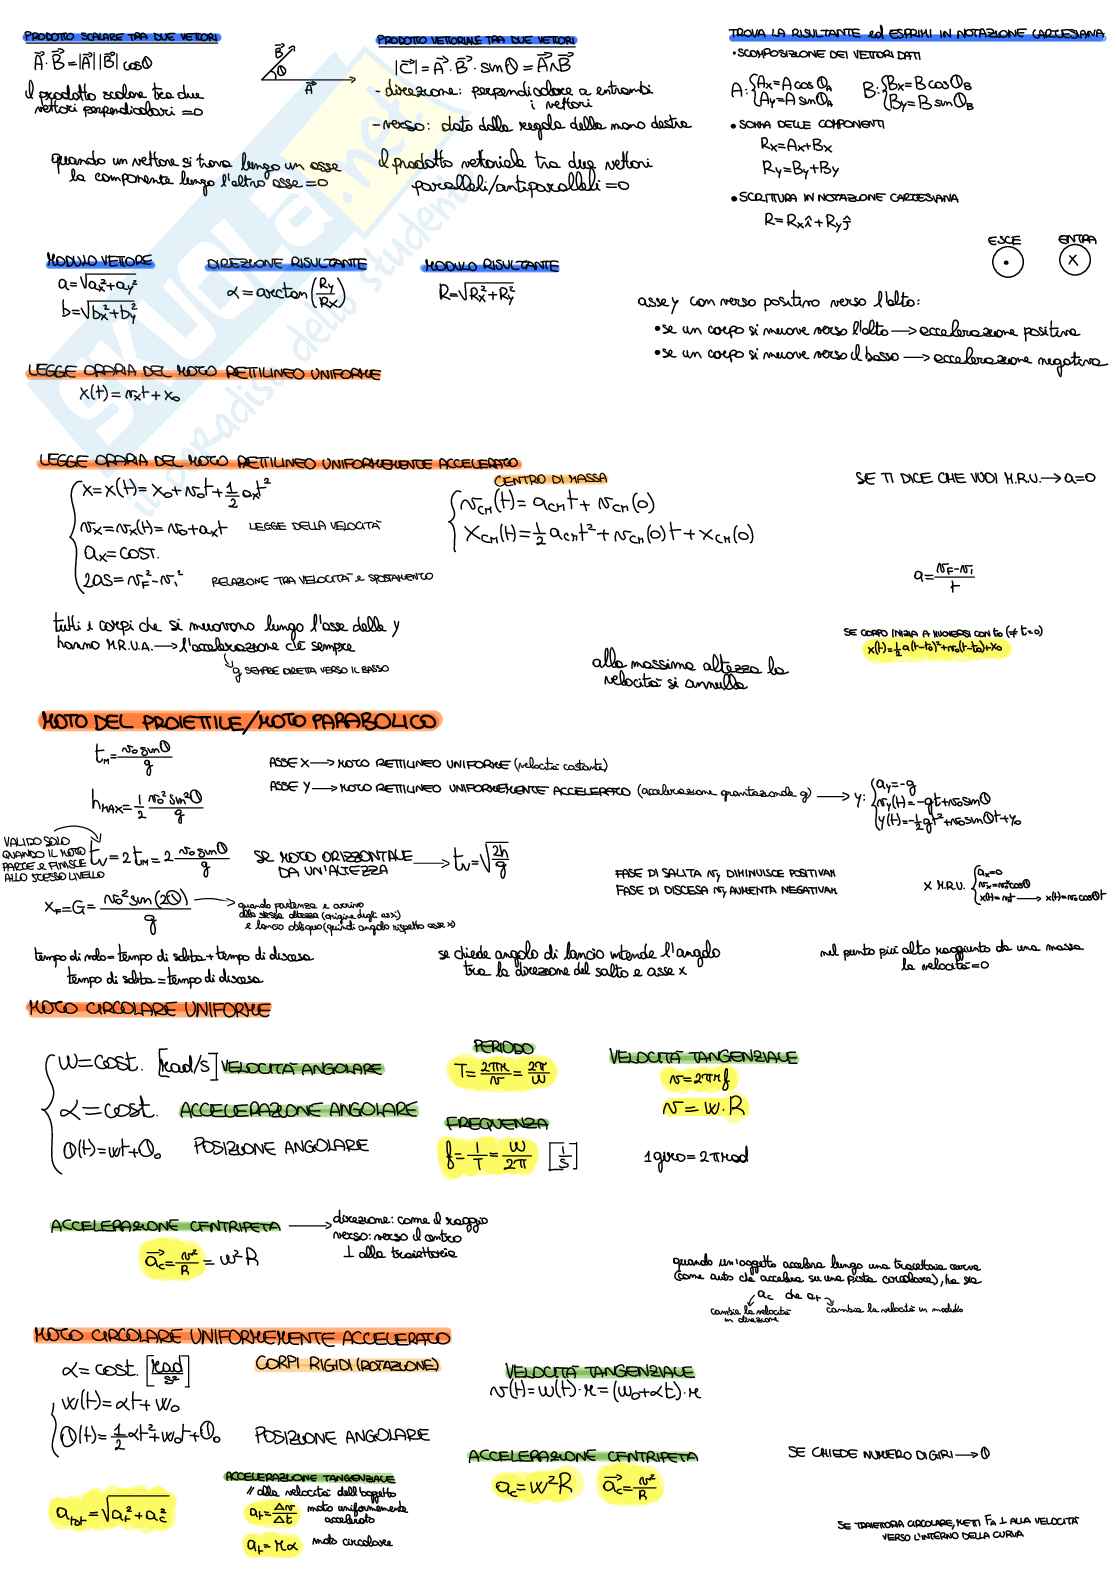 PRODOTTO SCALARE TRA DUE VETTORI
A⃗·B⃗=|A⃗||B⃗| cosθ
il prodotto scalare tra due
vettori perpendicolari =0
B⃗
θ
A⃗
quando un vettore si trova lungo un asse
la componente lungo l'altro asse =0
PRODOTTO VETTORIALE TRA DUE VETTORI
|C⃗|=A⃗·B⃗·sinθ=A⃗∧B⃗
-direzione: perpendicolare a entrambi
i vettori
-verso: dato dalla regola della mano destra
il prodotto vettoriale tra due vettori
paralleli/antiparalleli =0
TROVA LA RISULTANTE ed ESPRIMI IN NOTAZIONE CARTESIANA
•SCOMPOSIZIONE DEI VETTORI DATI
A:{Ax=A cosθA
Ay=A sinθA
B:{Bx=B cosθB
By=B sinθB
•SOMMA DELLE COMPONENTI
Rx=Ax+Bx
Ry=By+By
•SCRITTURA IN NOTAZIONE CARTESIANA
R=Rx x̂+Ry ŷ
ESCE
ENTRA
X
MODULO VETTORE
a=√ax²+ay²
b=√bx²+by²
DIREZIONE RISULTANTE
α=arctan(Ry/Rx)
MODULO RISULTANTE
R=√Rx²+Ry²
asse y con verso positivo verso l'alto:
•se un corpo si muove verso l'alto→accelerazione positiva
•se un corpo si muove verso il basso→accelerazione negativa
LEGGE ORARIA DEL MOTO RETTILINEO UNIFORME
x(t)=vxt+x₀
LEGGE ORARIA DEL MOTO RETTILINEO UNIFORMEMENTE ACCELERATO
x=x(t)=x₀+v₀t+1/2 axt²
vx=vx(t)=v₀+axt LEGGE DELLA VELOCITÀ
ax=COST.
2as=vF²-vi² RELAZIONE TRA VELOCITÀ e SPOSTAMENTO
CENTRO DI MASSA
vCM(t)=aCMt+vCM(0)
XCM(t)=1/2 aCMt²+vCM(0)t+XCM(0)
SE TI DICE CHE VUOI M.R.U.→a=0
a=vF-vi/t
tutti i corpi che si muovono lungo l'asse delle y
hanno M.R.U.A.→l'accelerazione c'è sempre
g SEMPRE DIRETTA VERSO IL BASSO
alla massima altezza la
velocità si annulla
SE CORPO INIZIA A MUOVERSI CON t₀ (≠t=0)
x(t)=1/2 a(t-t₀)²+v₀(t-t₀)+x₀
MOTO DEL PROIETTILE/MOTO PARABOLICO
tM=v₀ sinθ/g
hMAX=1/2 v₀² sin²θ/g
ASSE X→MOTO RETTILINEO UNIFORME (velocità costante)
ASSE Y→MOTO RETTILINEO UNIFORMEMENTE ACCELERATO (accelerazione gravitazionale g)→y:{ay=-g
vy(t)=-gt+v₀sinθ
y(t)=-1/2gt²+v₀sinθt+y₀
VALIDO SOLO
QUANDO IL MOTO
PARTE e FINISCE
ALLO STESSO LIVELLO
tv=2tM=2 v₀ sinθ/g
SE MOTO ORIZZONTALE
DA UN'ALTEZZA
→tv=√2h/g
FASE DI SALITA vy DIMINUISCE POSITIVAM
FASE DI DISCESA vy AUMENTA NEGATIVAM
X M.R.U.{ax=0
vx=v₀cosθ
x(t)=v₀t→x(t)=v₀cosθt
xF=G=v₀² sin(2θ)/g
quando partenza e arrivo
alla stessa altezza (origine degli assi)
e lancio obliquo (quindi angolo rispetto asse x)
tempo di volo=tempo di salita+tempo di discesa
tempo di salita=tempo di discesa
se chiede angolo di lancio intende l'angolo
tra la direzione del salto e asse x
nel punto più alto raggiunto da una massa
la velocità=0
MOTO CIRCOLARE UNIFORME
w=cost. [rad/s] VELOCITÀ ANGOLARE
α=cost. ACCELERAZIONE ANGOLARE
θ(t)=wt+θ₀ POSIZIONE ANGOLARE
PERIODO
T=2πr/v=2π/w
FREQUENZA
f=1/T=w/2π [1/s]
VELOCITÀ TANGENZIALE
v=2πrf
v=w·R
1giro=2πrad
ACCELERAZIONE CENTRIPETA
a⃗c=v²/R=w²R
direzione: come il raggio
verso: verso il centro
⊥ alla traiettoria
quando un'oggetto accelera lungo una traiettoria curva
(come auto che accelera su una pista circolare), ha sia
ac che at
cambia la velocità
in direzione
cambia la velocità in modulo
MOTO CIRCOLARE UNIFORMEMENTE ACCELERATO
α=cost.[rad/s²]
w(t)=αt+w₀
θ(t)=1/2αt²+w₀t+θ₀ POSIZIONE ANGOLARE
CORPI RIGIDI (ROTAZIONE)
VELOCITÀ TANGENZIALE
v(t)=w(t)·r=(w₀+αt)·r
ACCELERAZIONE CENTRIPETA
ac=w²R a⃗c=v²/R
SE CHIEDE NUMERO DI GIRI→θ
atot=√at²+ac²
ACCELERAZIONE TANGENZIALE
// alla velocità dell'oggetto
at=Δv/Δt moto uniformemente
accelerato
at=rα moto circolare
SE TRAIETTORIA CIRCOLARE, METTI FA ⊥ ALLA VELOCITÀ
VERSO L'INTERNO DELLA CURVA
SKUOLA.net
il paradiso dello studente